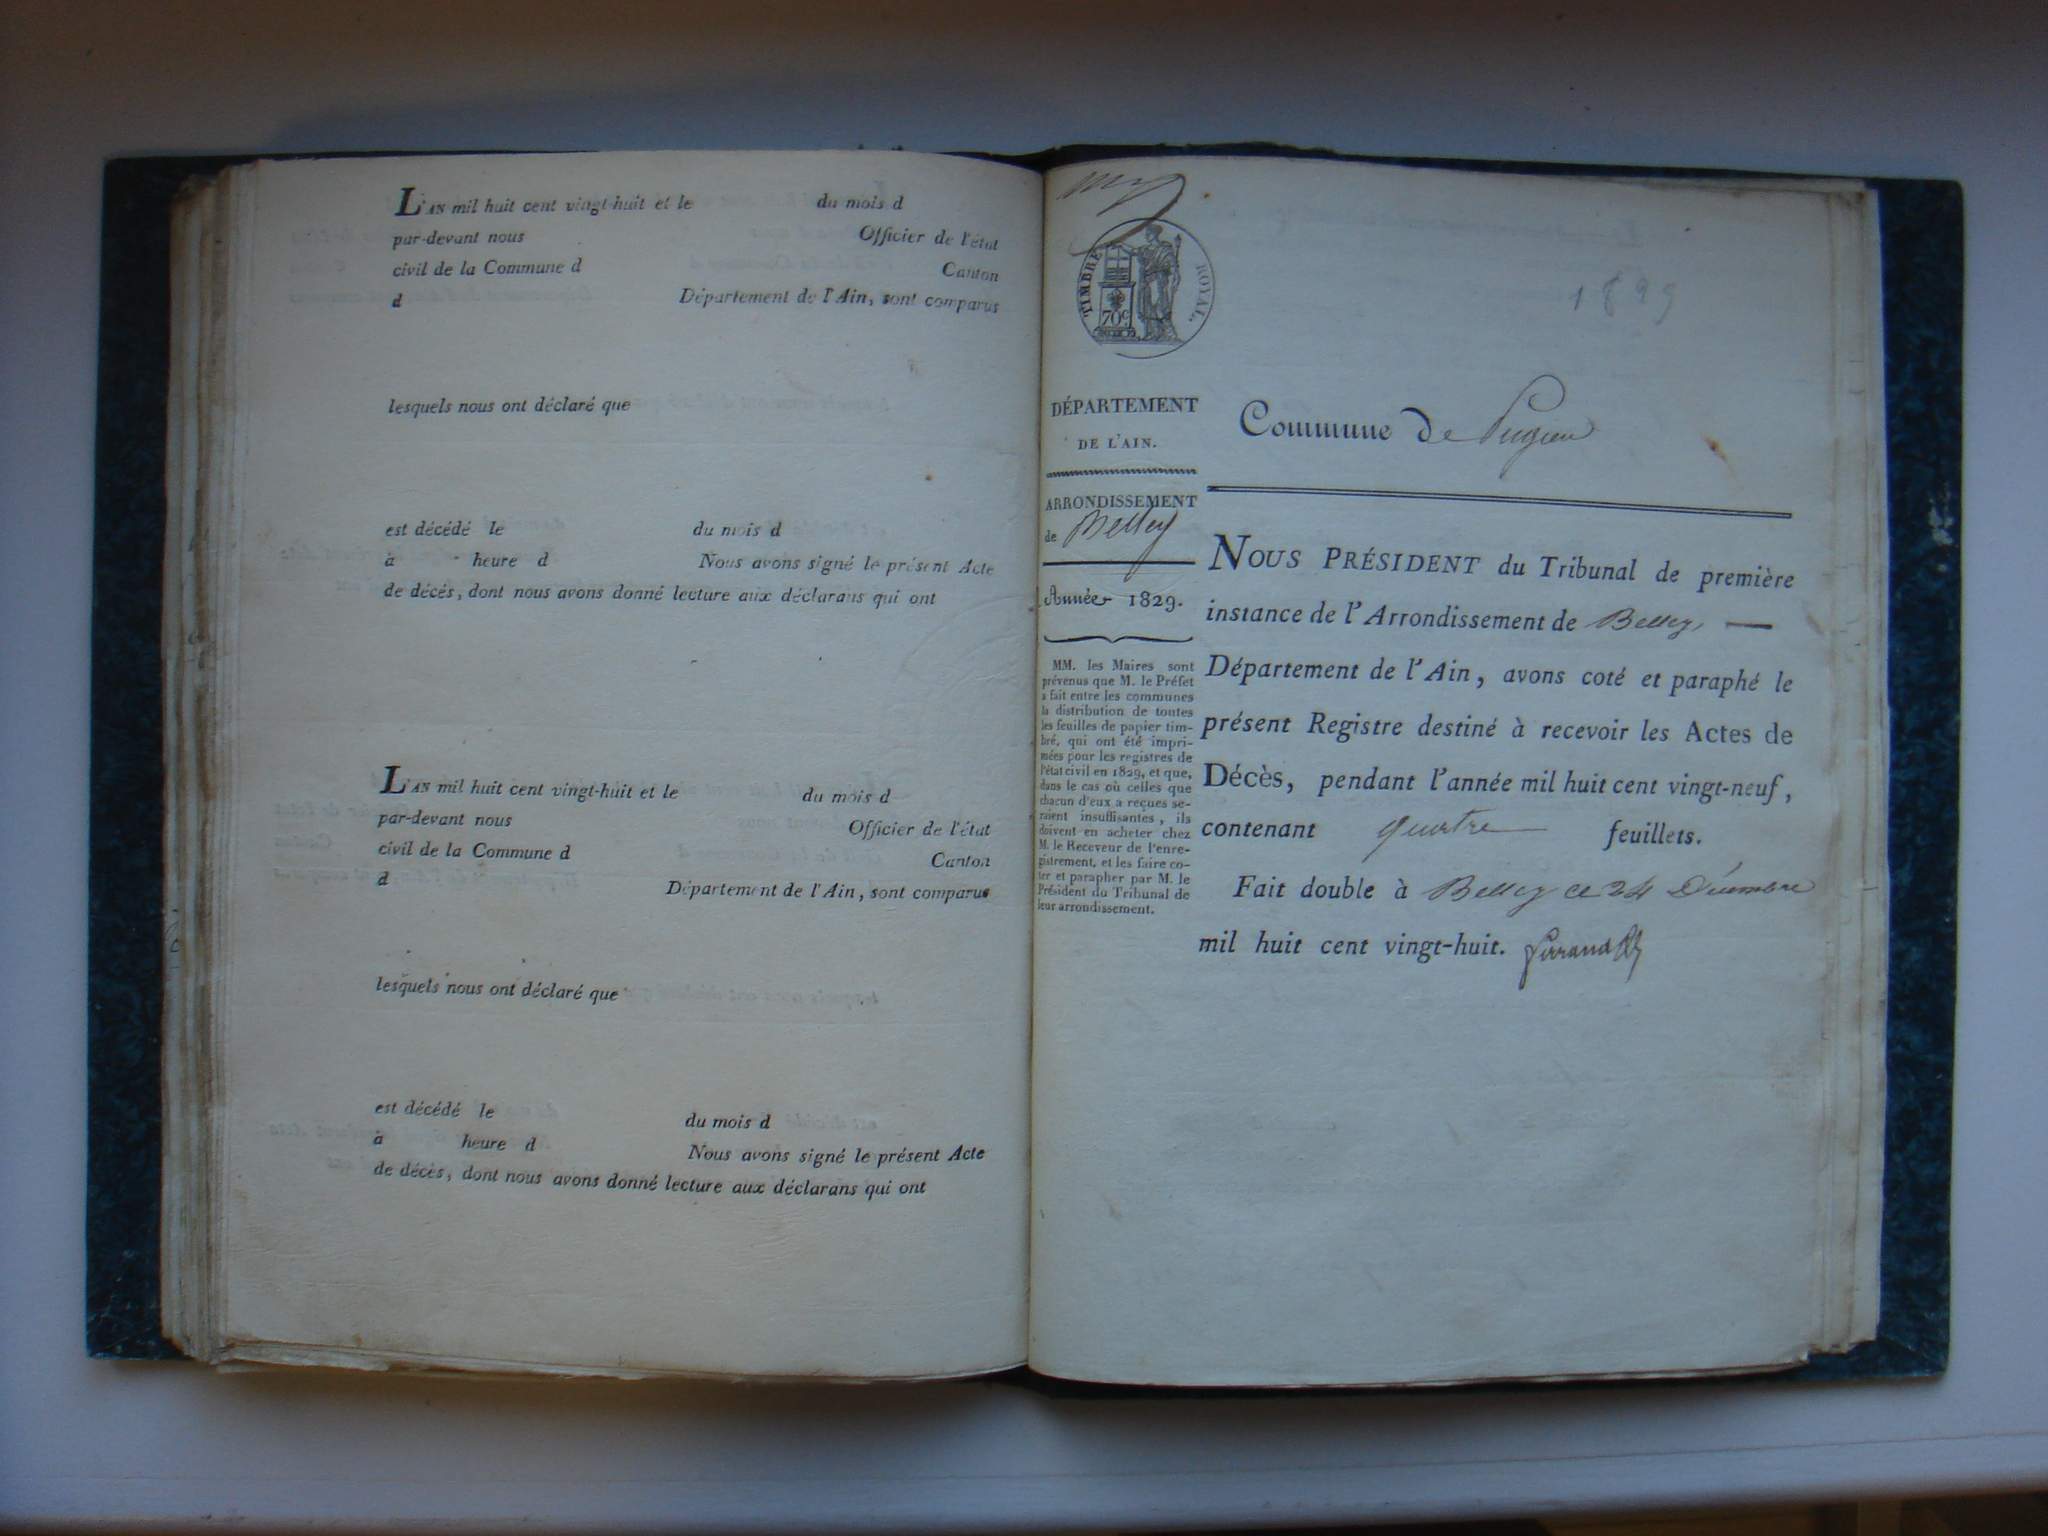 L'AN mil huit cent vingt-huit et le du mois d
par-devant nous Officier de l'état
civil de la Commune d Canton
d Département de l'Ain, sont comparus
lesquels nous ont déclaré que
est décédé le du mois d
à heure d Nous avons signé le présent Acte
de décés, dont nous avons donné lecture aux déclarans qui ont
L'AN mil huit cent vingt-huit et le du mois d
par-devant nous Officier de l'état
civil de la Commune d Canton
d Département de l'Ain, sont comparus
lesquels nous ont déclaré que
est décédé le du mois d
à heure d Nous avons signé le présent Acte
de décès, dont nous avons donné lecture aux déclarans qui ont
TIMBRE ROYAL
70c
1829
DÉPARTEMENT
DE L'AIN.
ARRONDISSEMENT
de Belley
Année 1829.
MM. les Maires sont
prévenus que M. le Préfet
a fait entre les communes
la distribution de toutes
les feuilles de papier tim-
bré, qui ont été impri-
mées pour les registres de
l'état civil en 1829, et que,
dans le cas où celles que
chacun d'eux a reçues se-
raient insuffisantes, ils
doivent en acheter chez
M. le Receveur de l'enre-
gistrement, et les faire co-
ter et parapher par M. le
Président du Tribunal de
leur arrondissement.
Commune de Pugieu
NOUS PRÉSIDENT du Tribunal de première
instance de l'Arrondissement de Belley
Département de l'Ain, avons coté et paraphé le
présent Registre destiné à recevoir les Actes de
Décès, pendant l'année mil huit cent vingt-neuf,
contenant quatre feuillets.
Fait double à Belley ce 24 Décembre
mil huit cent vingt-huit.